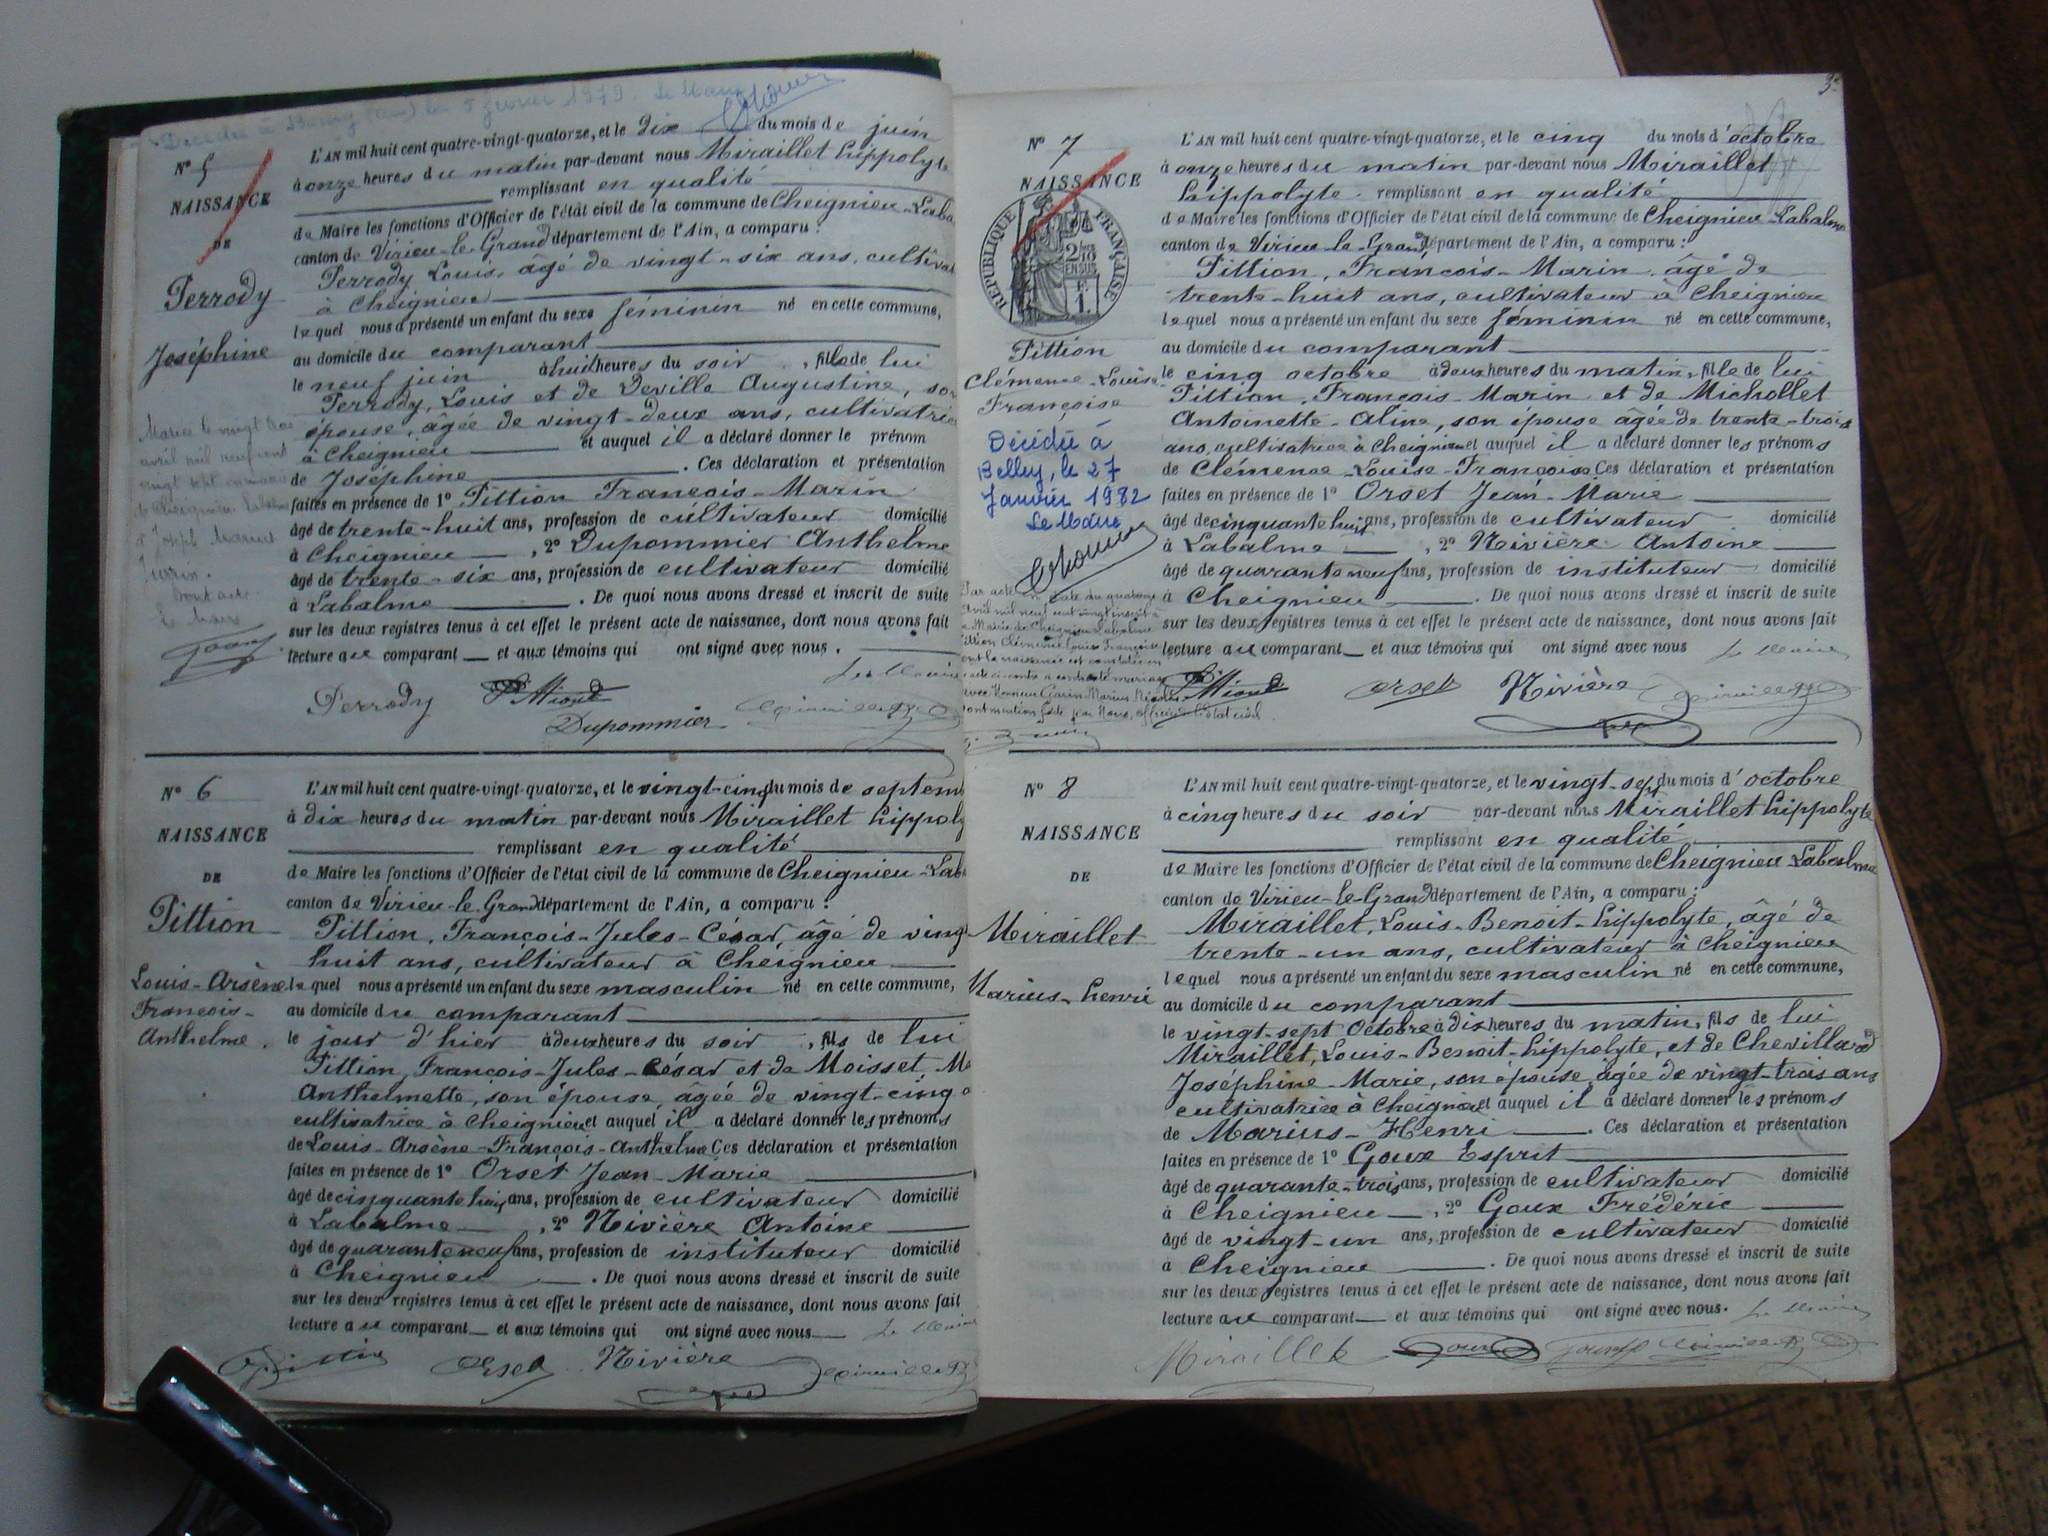 Décédée à (Ain) le 5 février 1979. Le Maire
N° 5
NAISSANCE
DE
Perrody
Joséphine
Mariée le vingt trois
avril mil neuf cent
vingt sept en mairie
de Cheignieu Labalme
à Joseph Marius
Dont acte
Le Maire
L'AN mil huit cent quatre-vingt-quatorze, et le dix du mois de juin
à onze heures du matin par-devant nous Miraillet hippolyte
remplissant en qualité
de Maire les fonctions d'Officier de l'état civil de la commune de Cheignieu-Laba
canton de Virieu-le-Grand département de l'Ain, a comparu :
Perrody Louis, âgé de vingt-six ans, cultivat
à Cheignieu
lequel nous a présenté un enfant du sexe féminin né en cette commune,
au domicile du comparant
le neuf juin à huit heures du soir, fille de lui
Perrody, Louis et de Deville Augustine, son
épouse, âgée de vingt-deux ans, cultivatrice
à Cheignieu et auquel il a déclaré donner le prénom
de Joséphine. Ces déclaration et présentation
faites en présence de 1° Pittion François-Marin
âgé de trente-huit ans, profession de cultivateur domicilié
à Cheignieu, 2° Dupommier Anthelme
âgé de trente-six ans, profession de cultivateur domicilié
à Labalme. De quoi nous avons dressé et inscrit de suite
sur les deux registres tenus à cet effet le présent acte de naissance, dont nous avons fait
lecture au comparant et aux témoins qui ont signé avec nous.
Le Maire
Perrody Pittion
Dupommier Miraillet
N° 6
NAISSANCE
DE
Pittion
Louis-Arsène
François-
Anthelme.
L'AN mil huit cent quatre-vingt-quatorze, et le vingt-cinq du mois de septem
à dix heures du matin par-devant nous Miraillet hippoly
remplissant en qualité
de Maire les fonctions d'Officier de l'état civil de la commune de Cheignieu-Lab
canton de Virieu-le-Grand département de l'Ain, a comparu :
Pittion, François-Jules-César, âgé de vingt
huit ans, cultivateur à Cheignieu
lequel nous a présenté un enfant du sexe masculin né en cette commune,
au domicile du comparant
le jour d'hier à deux heures du soir, fils de lui
Pittion, François-Jules-César et de Moisset, Ma
Anthelmette, son épouse, âgée de vingt-cinq a
cultivatrice à Cheignieu et auquel il a déclaré donner les prénoms
de Louis-Arsène-François-Anthelme Ces déclaration et présentation
faites en présence de 1° Orset Jean-Marie
âgé de cinquante huit ans, profession de cultivateur domicilié
à Labalme, 2° Nivière Antoine
âgé de quarante neuf ans, profession de instituteur domicilié
à Cheignieu. De quoi nous avons dressé et inscrit de suite
sur les deux registres tenus à cet effet le présent acte de naissance, dont nous avons fait
lecture au comparant et aux témoins qui ont signé avec nous
Le Maire
Pittion Orset Nivière Miraillet
3
N° 7
NAISSANCE
RÉPUBLIQUE FRANÇAISE
2/10
EN SUS
1 F.
Pittion
Clémence-Louise-
Françoise
Décédée à
Belley, le 27
Janvier 1982
Le Maire
Par acte en date du quatorze
Avril mil neuf cent vingt inscrit à
la Mairie de Cheignieu Labalme
Pittion Clémence Louise Françoise
dont la naissance est constatée en
l'acte ci-contre a contracté mariage
avec Monsieur Garin Marius
Dont mention faite par Nous, officier de l'état civil.
L'AN mil huit cent quatre-vingt-quatorze, et le cinq du mois d'octobre
à onze heures du matin par-devant nous Miraillet
hippolyte remplissant en qualité
de Maire les fonctions d'Officier de l'état civil de la commune de Cheignieu-Labalme
canton de Virieu-le-Grand département de l'Ain, a comparu :
Pittion, François-Marin, âgé de
trente-huit ans, cultivateur à Cheignieu
lequel nous a présenté un enfant du sexe féminin né en cette commune,
au domicile du comparant
le cinq octobre à deux heures du matin, fille de lui
Pittion, François-Marin et de Michollet
Antoinette-Aline, son épouse âgée de trente-trois
ans, cultivatrice à Cheignieu et auquel il a déclaré donner les prénoms
de Clémence-Louise-Françoise Ces déclaration et présentation
faites en présence de 1° Orset Jean-Marie
âgé de cinquante huit ans, profession de cultivateur domicilié
à Labalme, 2° Nivière Antoine
âgé de quarante neuf ans, profession de instituteur domicilié
à Cheignieu. De quoi nous avons dressé et inscrit de suite
sur les deux registres tenus à cet effet le présent acte de naissance, dont nous avons fait
lecture au comparant et aux témoins qui ont signé avec nous
Le Maire
Pittion Orset Nivière Miraillet
N° 8
NAISSANCE
DE
Miraillet
Marius-henri
L'AN mil huit cent quatre-vingt-quatorze, et le vingt-sept du mois d'octobre
à cinq heures du soir par-devant nous Miraillet hippolyte
remplissant en qualité
de Maire les fonctions d'Officier de l'état civil de la commune de Cheignieu Labalme
canton de Virieu-le-Grand département de l'Ain, a comparu :
Miraillet, Louis-Benoit-hippolyte, âgé de
trente-un ans, cultivateur à Cheignieu
lequel nous a présenté un enfant du sexe masculin né en cette commune,
au domicile du comparant
le vingt-sept octobre à dix heures du matin, fils de lui
Miraillet, Louis-Benoit-hippolyte, et de Chevillard
Joséphine-Marie, son épouse, âgée de vingt-trois ans
cultivatrice à Cheignieu et auquel il a déclaré donner les prénoms
de Marius-Henri. Ces déclaration et présentation
faites en présence de 1° Goux Esprit
âgé de quarante-trois ans, profession de cultivateur domicilié
à Cheignieu, 2° Goux Frédéric
âgé de vingt-un ans, profession de cultivateur domicilié
à Cheignieu. De quoi nous avons dressé et inscrit de suite
sur les deux registres tenus à cet effet le présent acte de naissance, dont nous avons fait
lecture au comparant et aux témoins qui ont signé avec nous.
Le Maire
Miraillet Goux Goux Miraillet